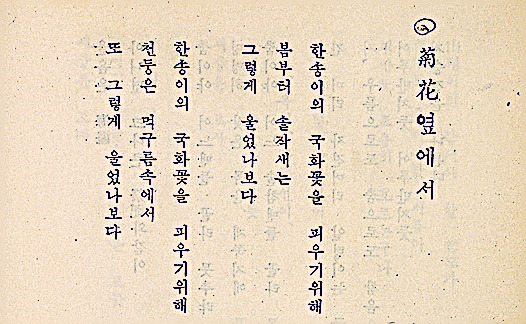 菊花옆에서
한송이의 국화꽃을 피우기위해
봄부터 솔작새는
그렇게 울었나보다
한송이의 국화꽃을 피우기위해
천둥은 먹구름속에서
또 그렇게 울었나보다